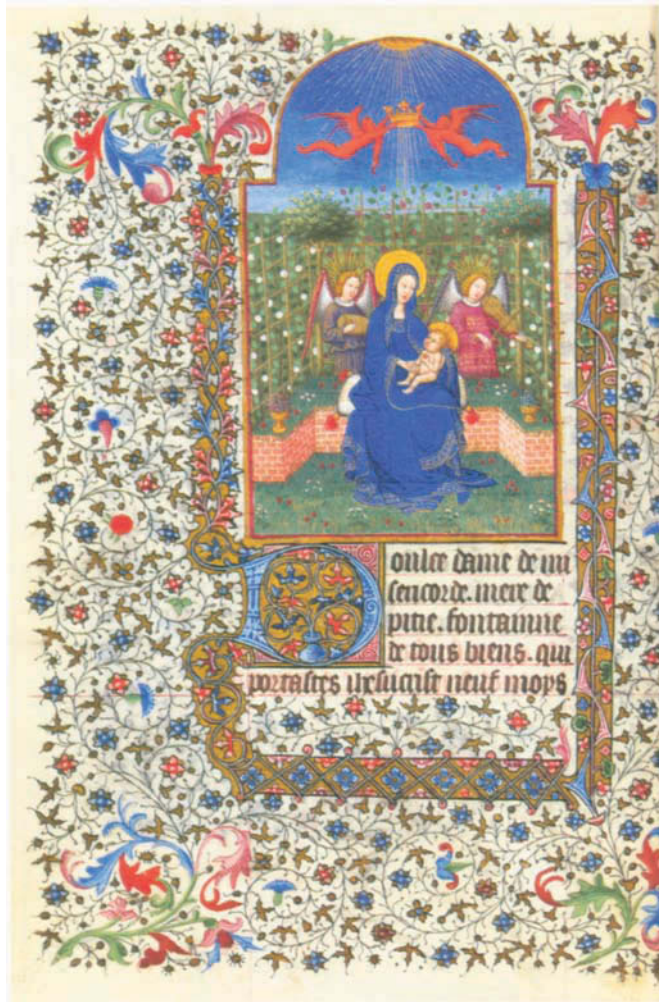 Doulce dame de mi
sericorde. mere de
pitie. fontainne
de tous biens. qui
portastes ihesucrist neuf moys